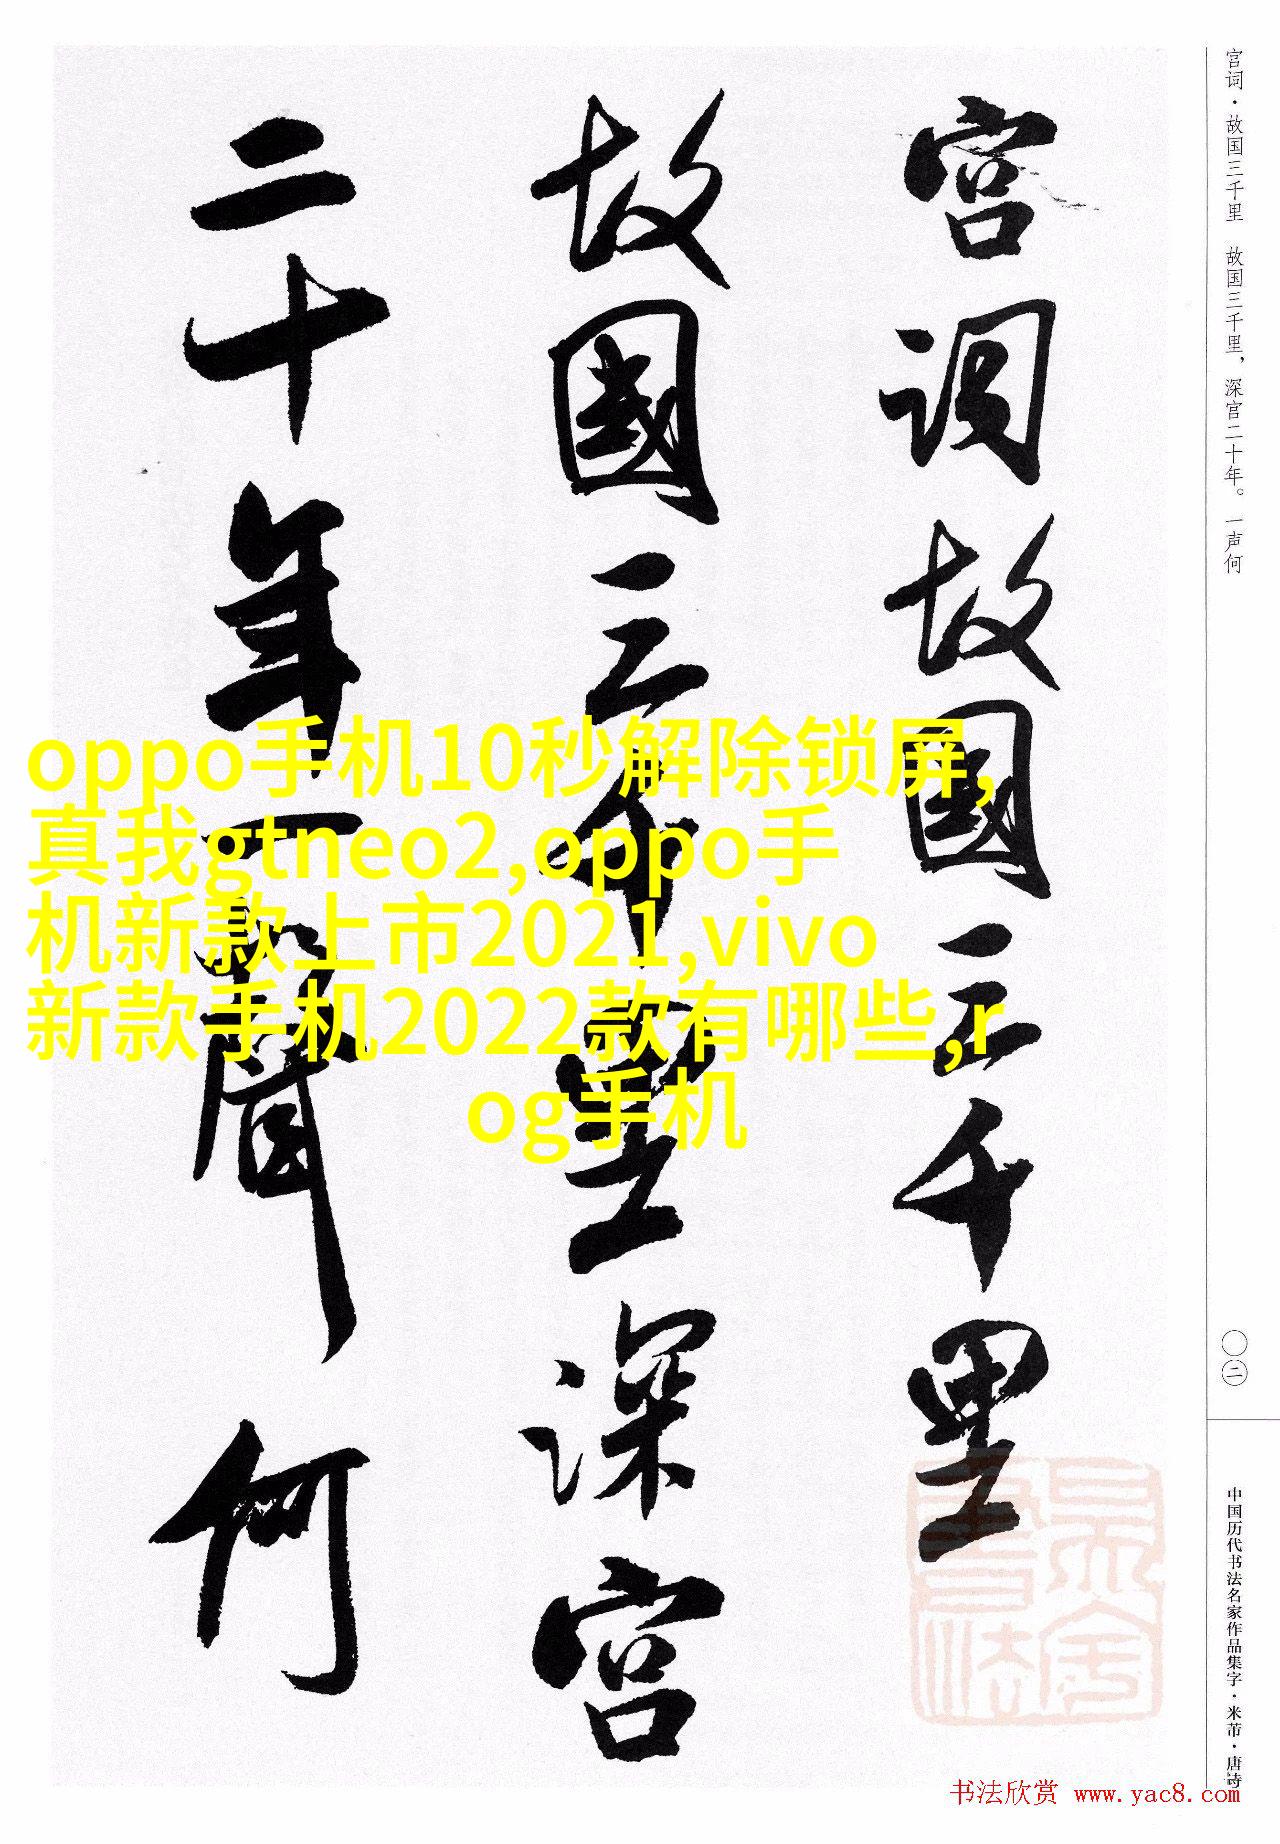 宫词·故国三千里 故国三千里，深宫二十年。一声何
宫词故國三千里
故國三千里深宫
二十年一聲何
oppo手机10秒解除锁屏,
真我gtneo2,oppo手
机新款上市2021,vivo
新款手机2022款有哪些,r
og手机
〇二
中国历代书法名家作品集字·米芾·唐诗
书法欣赏 www.yac8.com